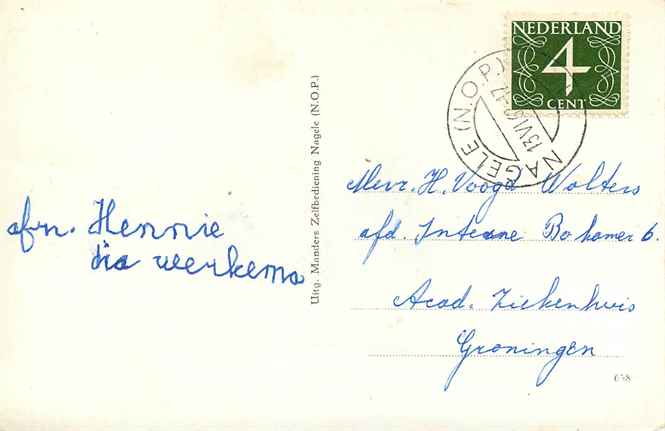 NEDERLAND
4
CENT
NAGELE (N.O.P.)
13 VI
Uitg. Manders Zelfbediening Nagele (N.O.P.)
afz. Hennie
Mevr. H. Voogd Wolters
afd. Interne Bo kamer 6.
Acad. Ziekenhuis
Groningen
638